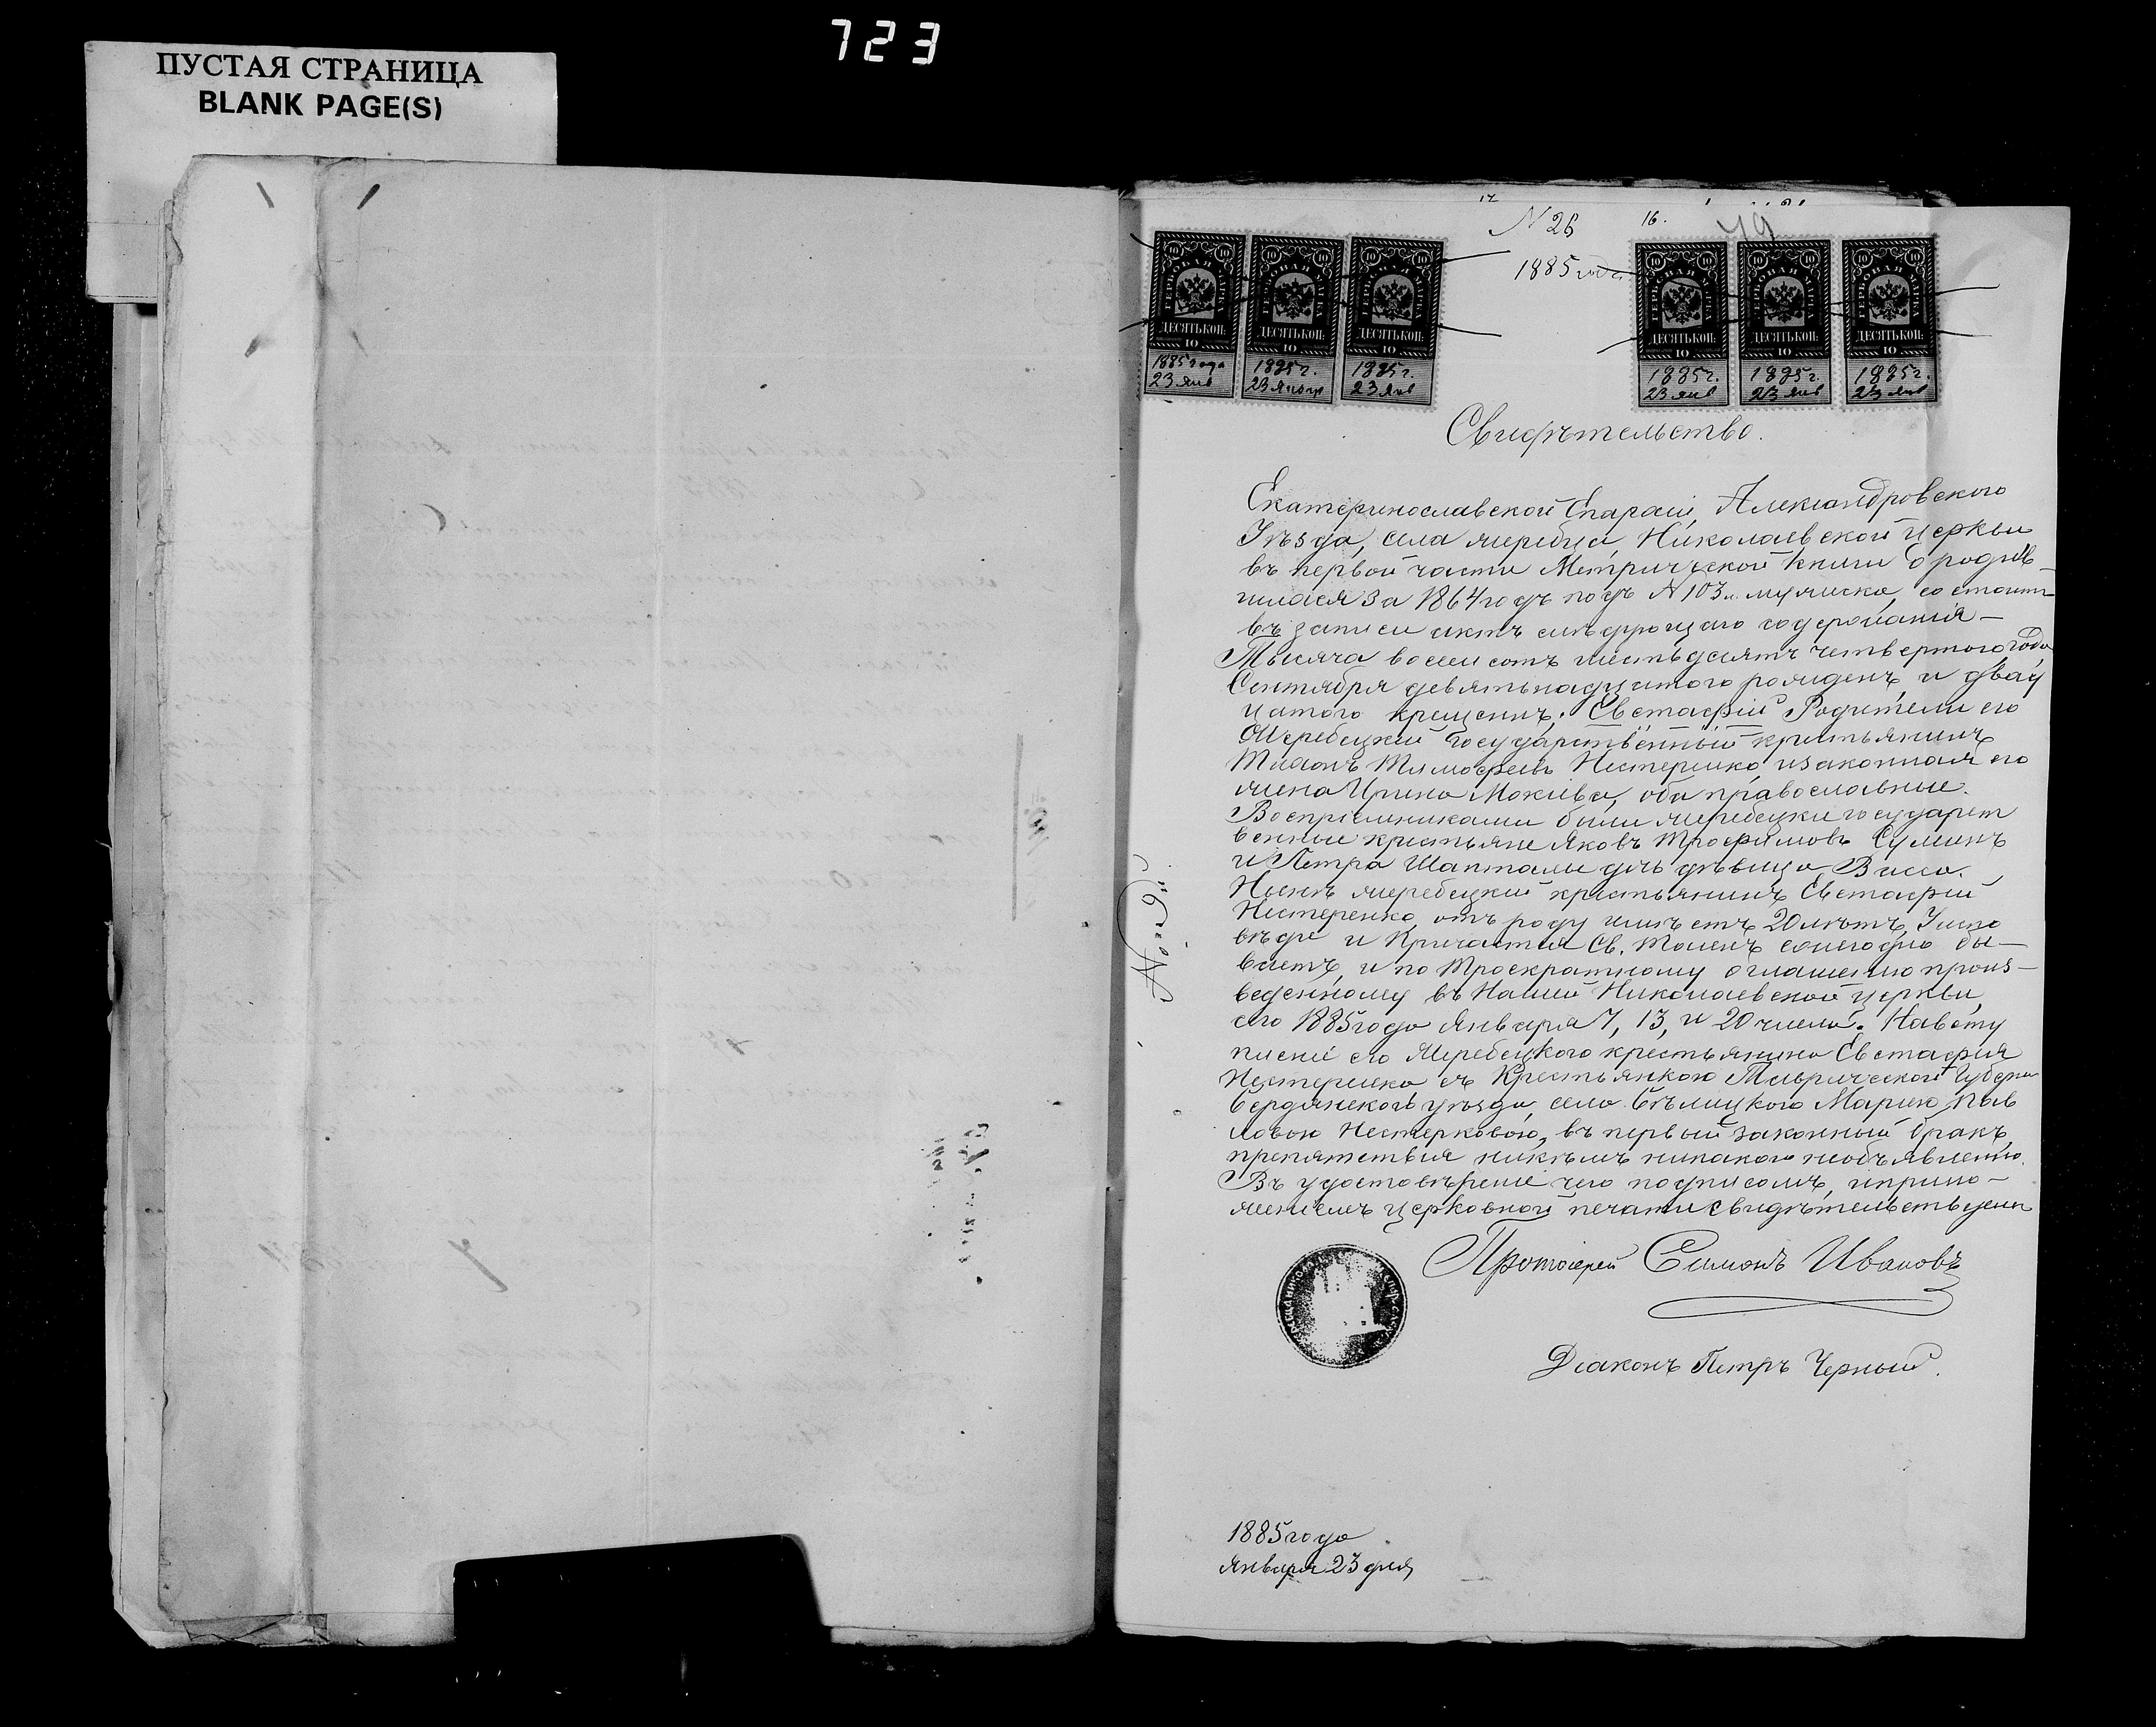 723
ПУСТАЯ СТРАНИЦА
BLANK PAGE(S)
N 26
16.
49
1885 года
ГЕРБОВАЯ МАРКА ДЕСЯТЬ КОП: 10
ГЕРБОВАЯ МАРКА ДЕСЯТЬ КОП: 10
ГЕРБОВАЯ МАРКА ДЕСЯТЬ КОП: 10
ГЕРБОВАЯ МАРКА ДЕСЯТЬ КОП: 10
ГЕРБОВАЯ МАРКА ДЕСЯТЬ КОП: 10
ГЕРБОВАЯ МАРКА ДЕСЯТЬ КОП: 10
1885 года 23 янв
1885 г. 23 январ
1885 г. 23 янв
1885 г. 23 янв
1885 г. 23 янв
1885 г. 23 янв
Свидѣтельство.
Екатеринославской Епархіи, Александровского
Уѣзда, села жеребца, Николаевской церкви
въ первой части Метрической книги о родив-
шихся за 1864 годъ подъ № 103 м. мужиска, состоитъ
въ записи актъ слѣдующаго содержанія –
Тысяча восемсотъ шестьдесятъ четвертого года
Сентября девятьнадцатого рожденъ, и двад
цатого крещенъ; Евстафій Родители его
Жеребецкій государственный крестьянинъ
Тимофѣевъ Нестеренко, и законная его
жена Ирина Мокіева, оба православные.
Воспріемниками были жеребецки государст
венные крестьяне Яковъ Трофимовъ
и Петра Шаптали дочь дѣвица
Нынѣ жеребецкий крестьянинъ Евстафий
Нестеренко, отъ роду имѣетъ 20 лѣтъ, Успо
вѣди и Причастия Св. Таинъ ежегодно бы–
ваетъ, и по Троекратному оглашению произ–
веденному въ Нашей Николаевской церкви,
сего 1885 года Января 7, 13, и 20 числа. На всту
пление его Жеребецкого крестьянина Евстафия
Нестеренка съ Крестьянкою Таврической Губерни
Бердянского уѣзда, села Бѣлицкого Мариею Пав
ловою Нестерковою, въ первый законный бракъ,
препятствия никѣмъ никакого необъявленно.
Въ удостовѣрение чего подписомъ, и прило–
жениемъ церковной печати свидѣтельствуемъ
Протоіерей Симонъ Ивановъ
Діаконъ Петръ Черный.
1885 года
Января 23 дня,